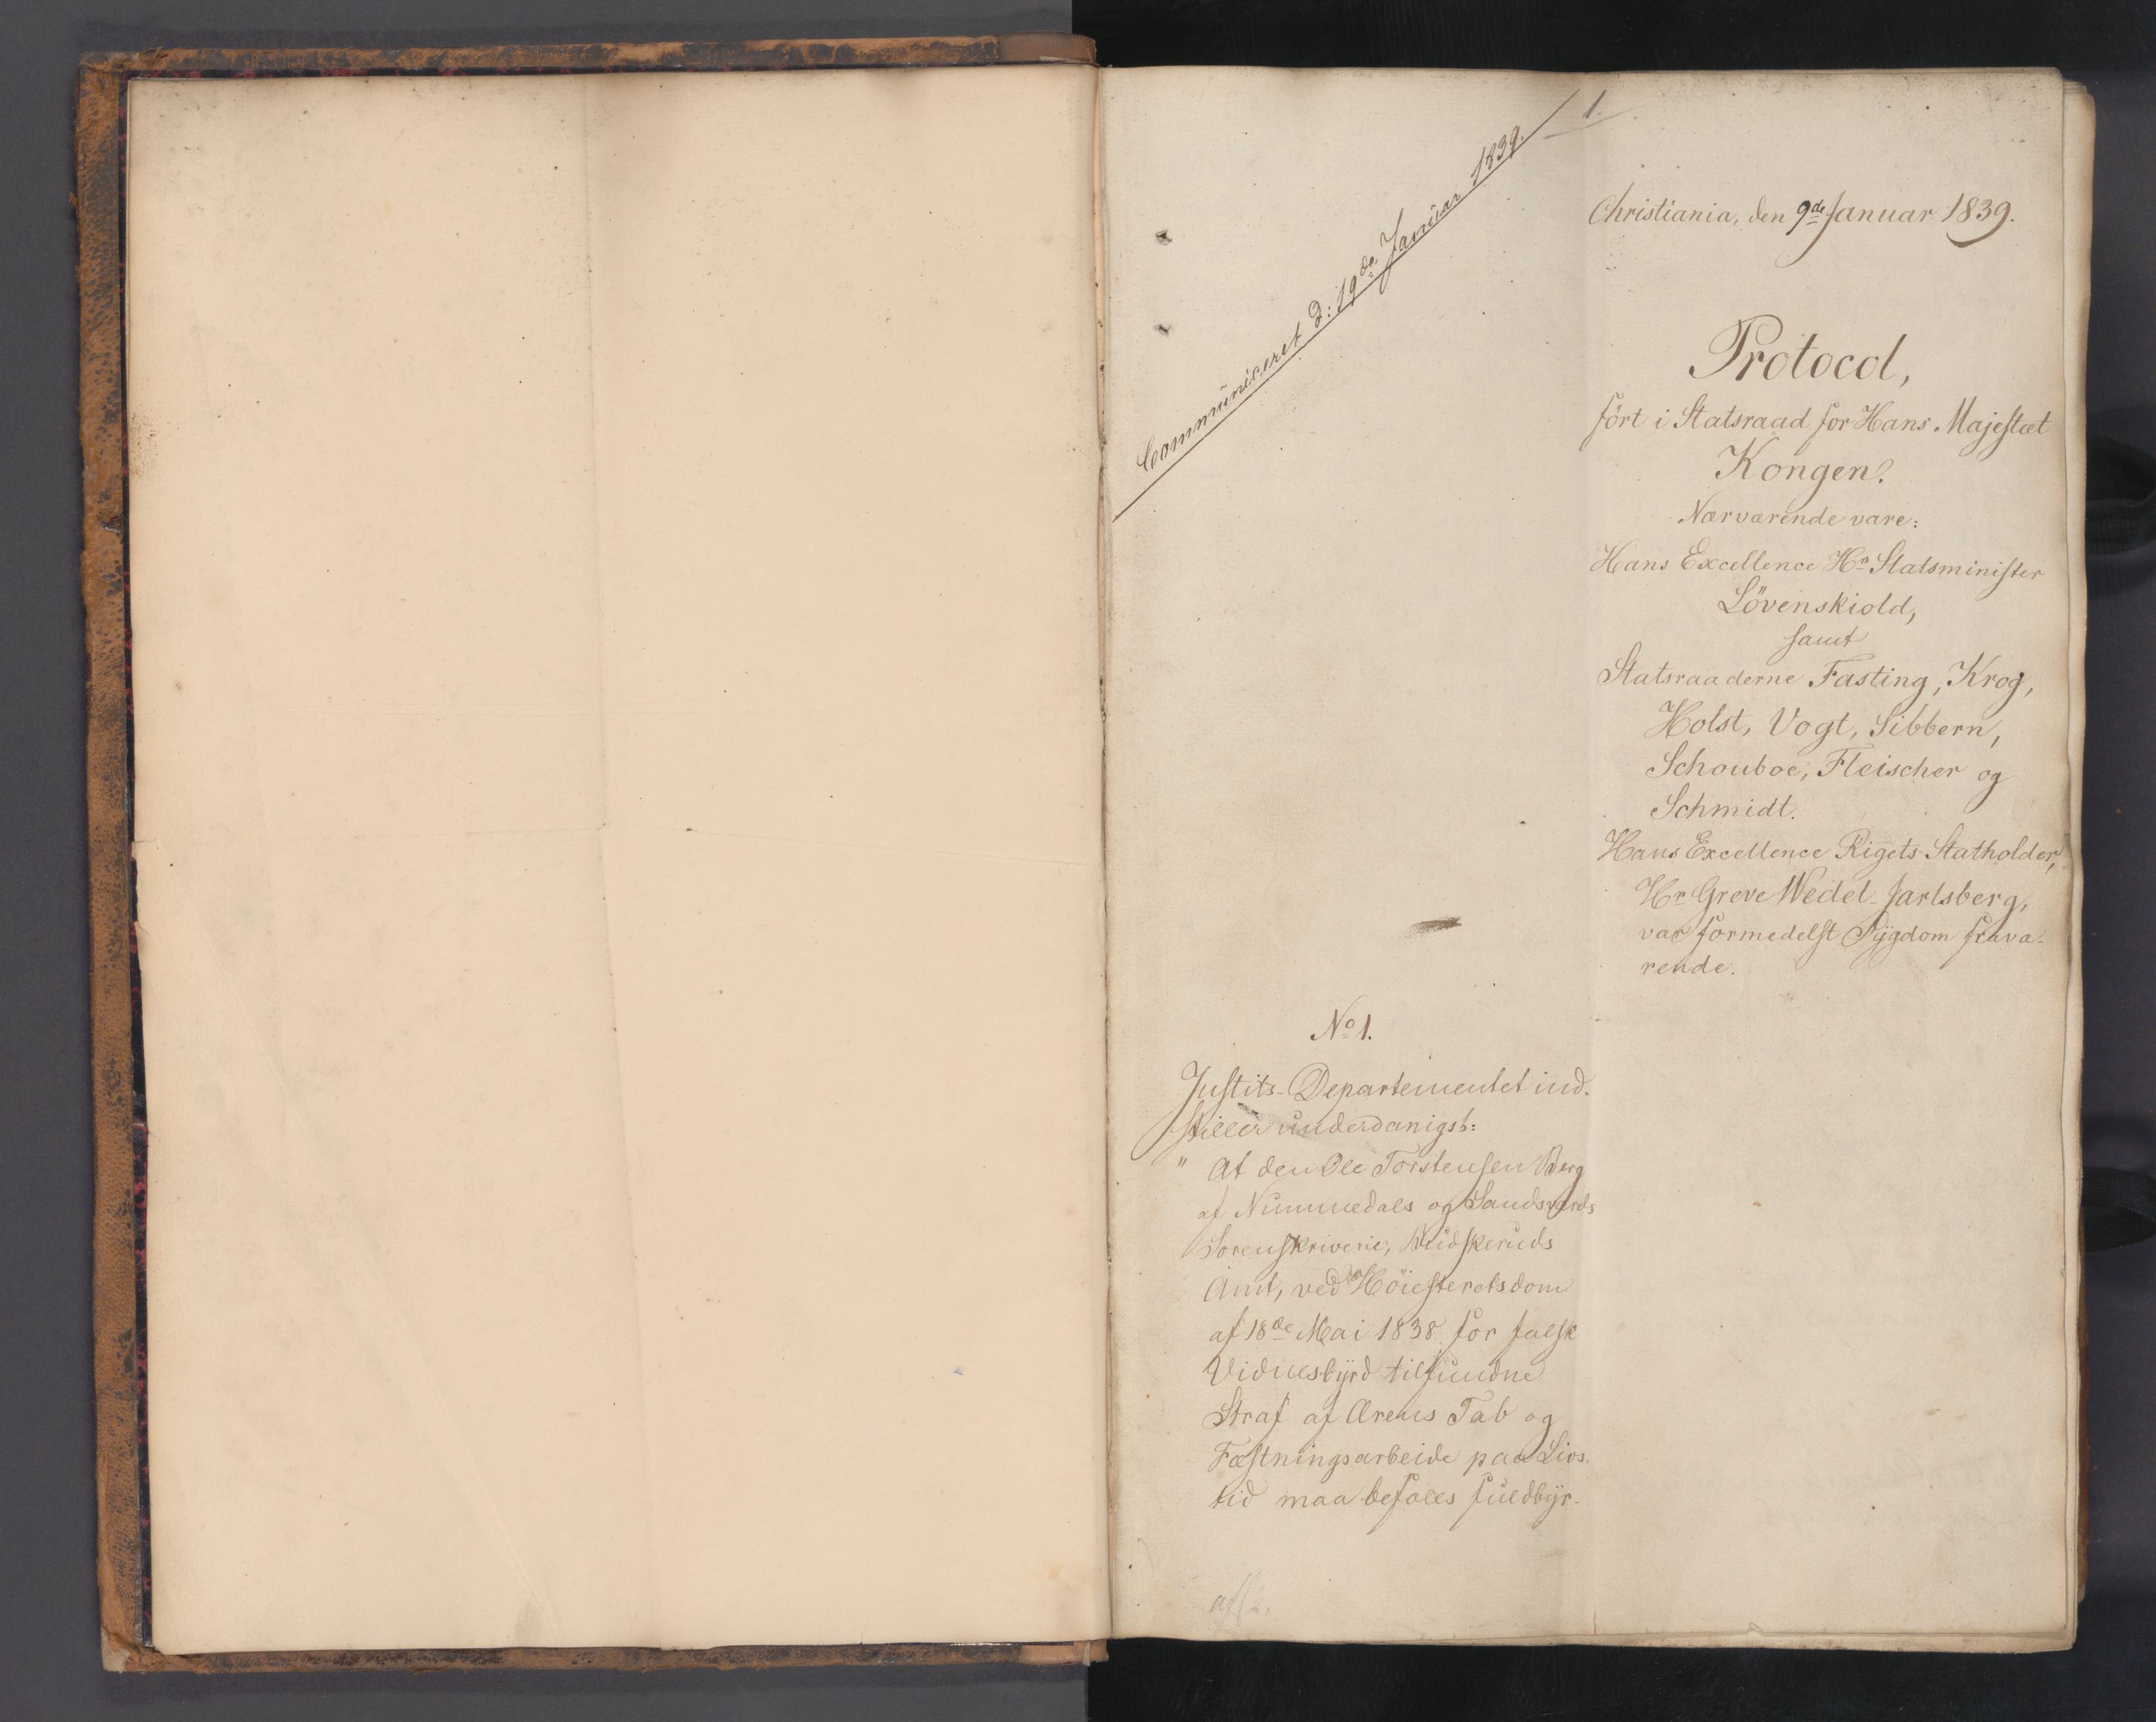 1.
Communiceret d: 19de Januar 1839.
Christiania, den 9de Januar 1839.
Protocol,
ført i Statsraad for Hans Majestæt
Kongen.
Nærværende vare:
Hans Excellence Hr Statsminister
Lövenskiold,
samt
Statsraaderne Fasting, Krog,
Holst, Vogt, Sibbern,
Schouboe, Fleischer og
Schmidt.
Hans Excellence Rigets Statholder,
Hr Greve Wedel-Jarlsberg,
var formedelst Sygdom fravæ-
rende.
No 1.
Justits-Departementet ind-
stiller underdanigst:
" At den Ole Torstensen Berg
af Nummedals og Sandsværds
Sorenskriverie, Budskeruds
Amt, ved Höiesteretsdom
af 18de Mai 1838 for falsk
Vidnesbyrd tilfundne
Straf af Ærens Tab og
Fæstningsarbeide paa Livs-
tid maa befales fuldbyr-